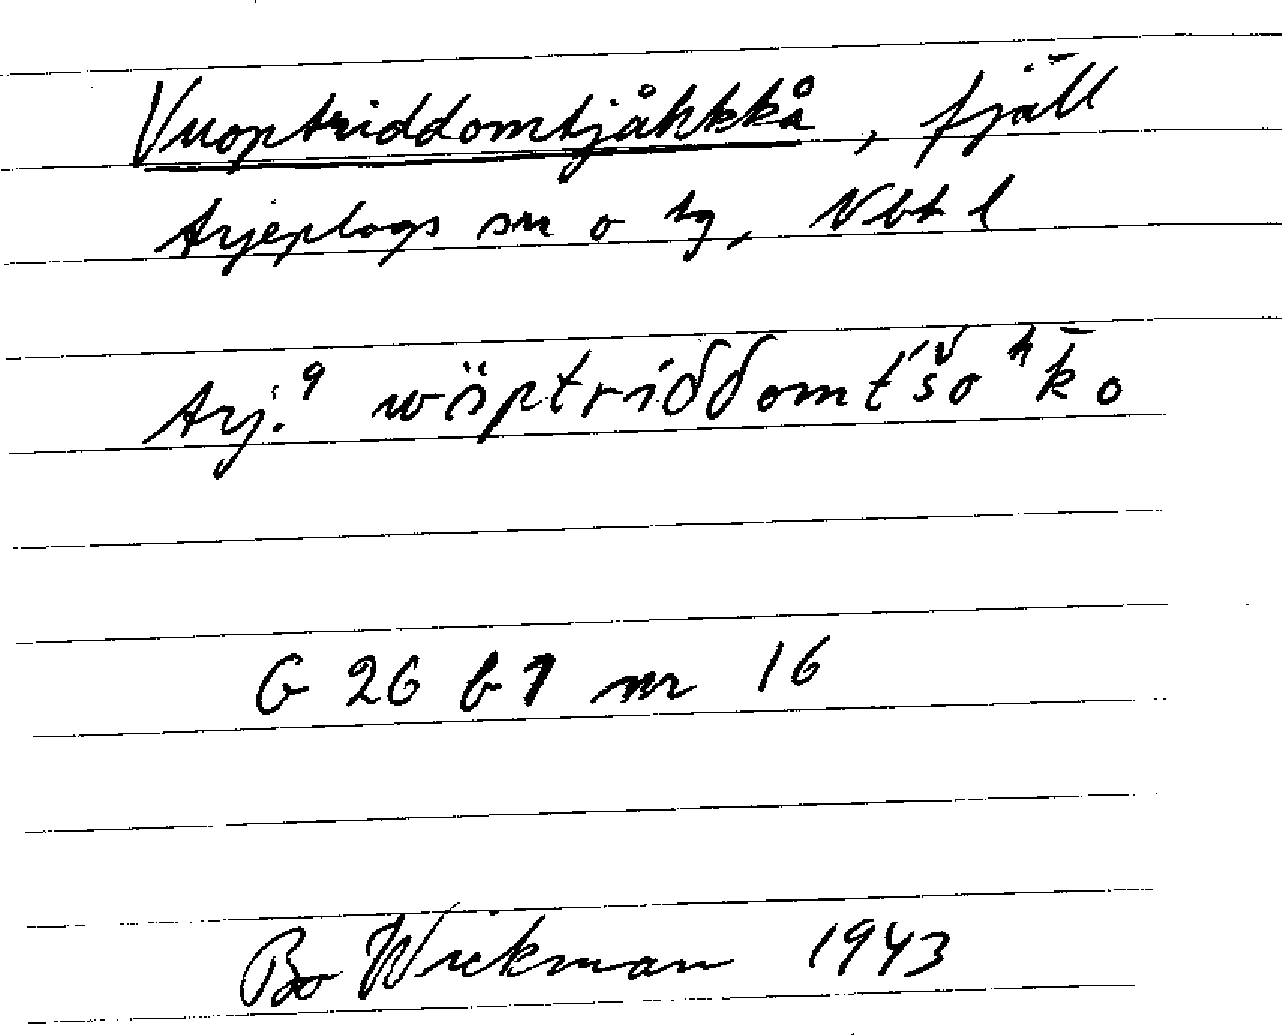 Vuoptriddomtjåhkkå, fjäll
Arjeplogs sn o tg, Nbt l
Arj.⁹ wöptriδδomt́šoʰk̄o
G 26 b 1 nr 16
Bo Wickman 1943